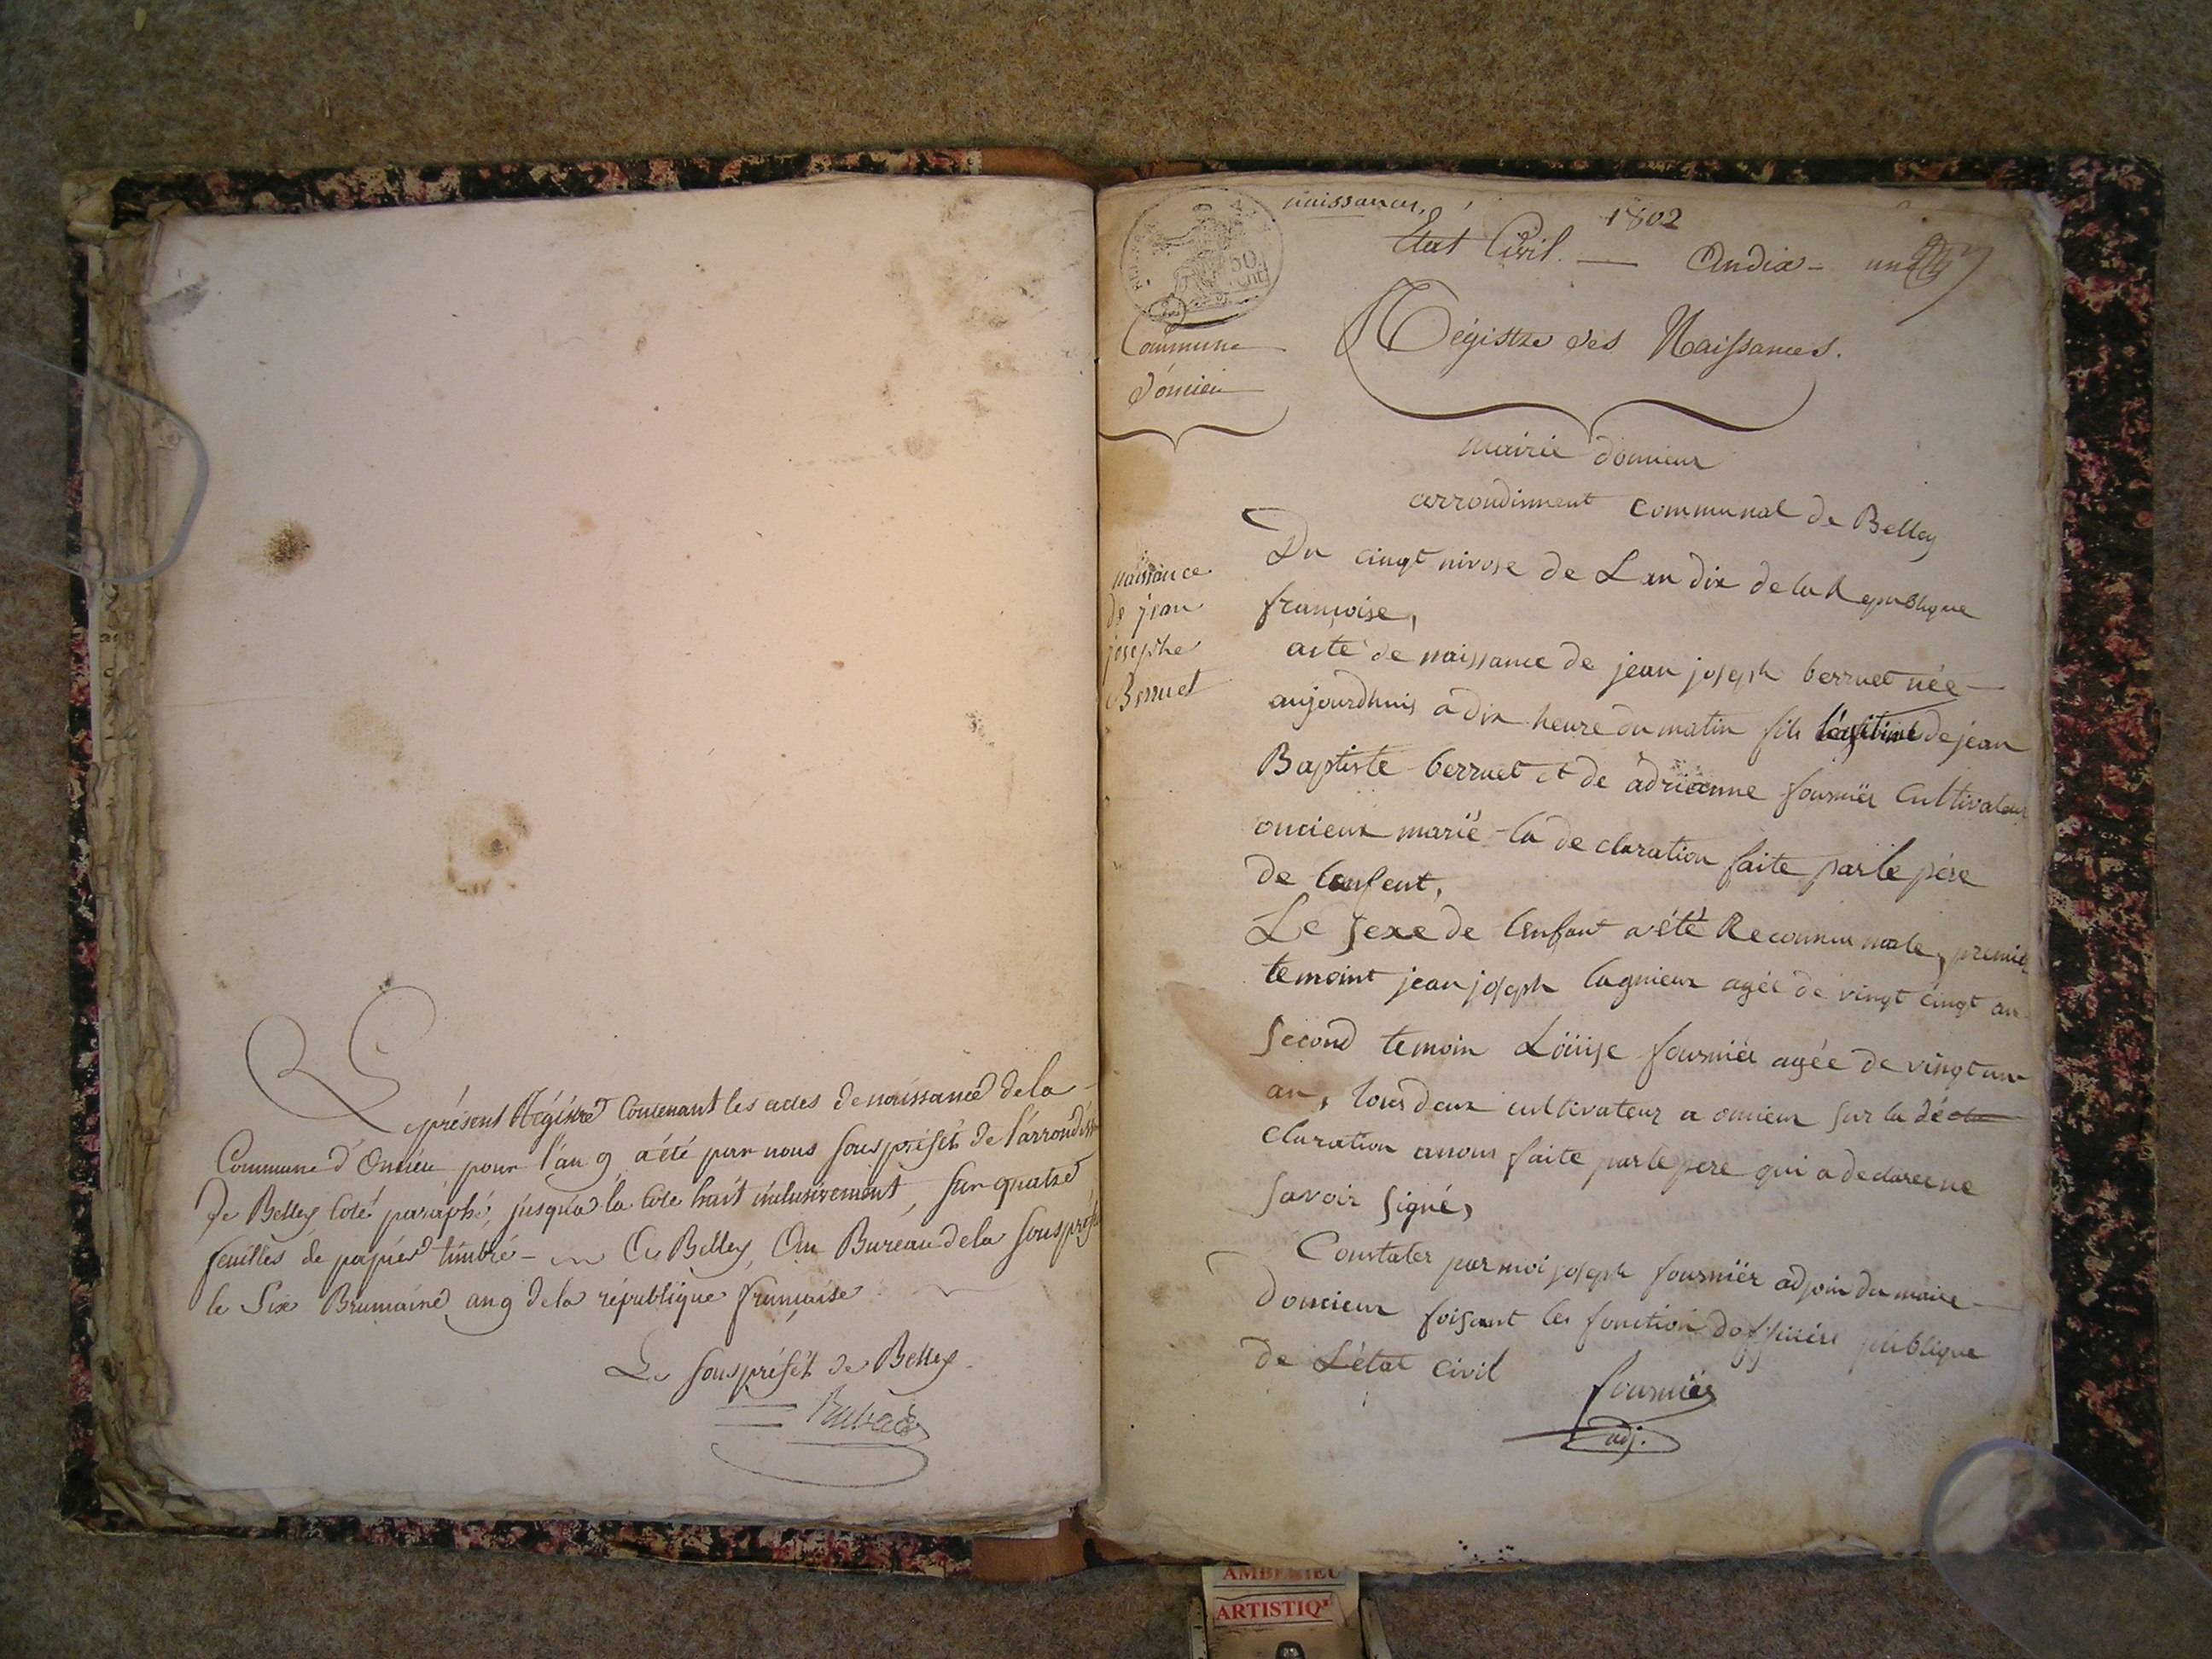 Le présent Régistre Contenant les actes de naissance de la
Commune d'Oncieu pour l'an 9 a été par nous sous préfêt de l'arrondissm
de Belley coté paraphé, jusqu'à la cote huit inclusivement, sur quatre
feuilles de papier timbré - A Belley, Au Bureau de la Sous préf
le Six Brumaire an 9 de la république française
Le sous préfêt de Belley
naissances, 1802
50
Etat Civil. — An dix - un
Commune
d'oncieu
Régistre des Naissances.
mairie doncieux
arrondiment communal de Belley
naissance
de jean
josephe
Berruet
Du cinqt nivose de Lan dix de la Republique
françoise,
acte de naissance de jean joseph berruet née
aujourdhuis a dix heure du matin fils légitime de jean
Baptiste berruet et de adrienne fournier Cultivateur
oncieux marié la de claration faite par le père
de lenfent,
Le sexe de lenfant a été Reconnue male, premie
temoint jean joseph lagnieux agée de vingt cinqt an
second temoin Loüise fournier agée de vingt un
an, tous deux cultivateur a oncieux sur la dé
claration anous faite par le pere qui a declarée ne
savoir signé,
Constater par moi joseph fournier adjoin du maire
doncieux foisant les fonction dofficiére publique
de L'état civil
fournier
adj.
AMBERIEU
ARTISTIQ